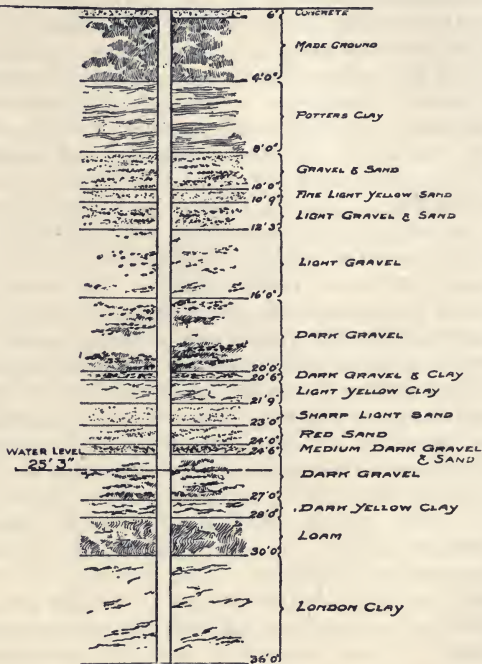 6"
CONCRETE
MADE GROUND
4'0"
POTTERS CLAY
8'0"
GRAVEL & SAND
10'0"
FINE LIGHT YELLOW SAND
10'9"
LIGHT GRAVEL & SAND
12'3"
LIGHT GRAVEL
16'0"
DARK GRAVEL
20'0"
DARK GRAVEL & CLAY
20'6"
LIGHT YELLOW CLAY
21'9"
SHARP LIGHT SAND
23'0"
RED SAND
24'0"
MEDIUM DARK GRAVEL
& SAND
24'6"
WATER LEVEL
25'3"
DARK GRAVEL
27'0"
DARK YELLOW CLAY
28'0"
LOAM
30'0"
LONDON CLAY
36'0"